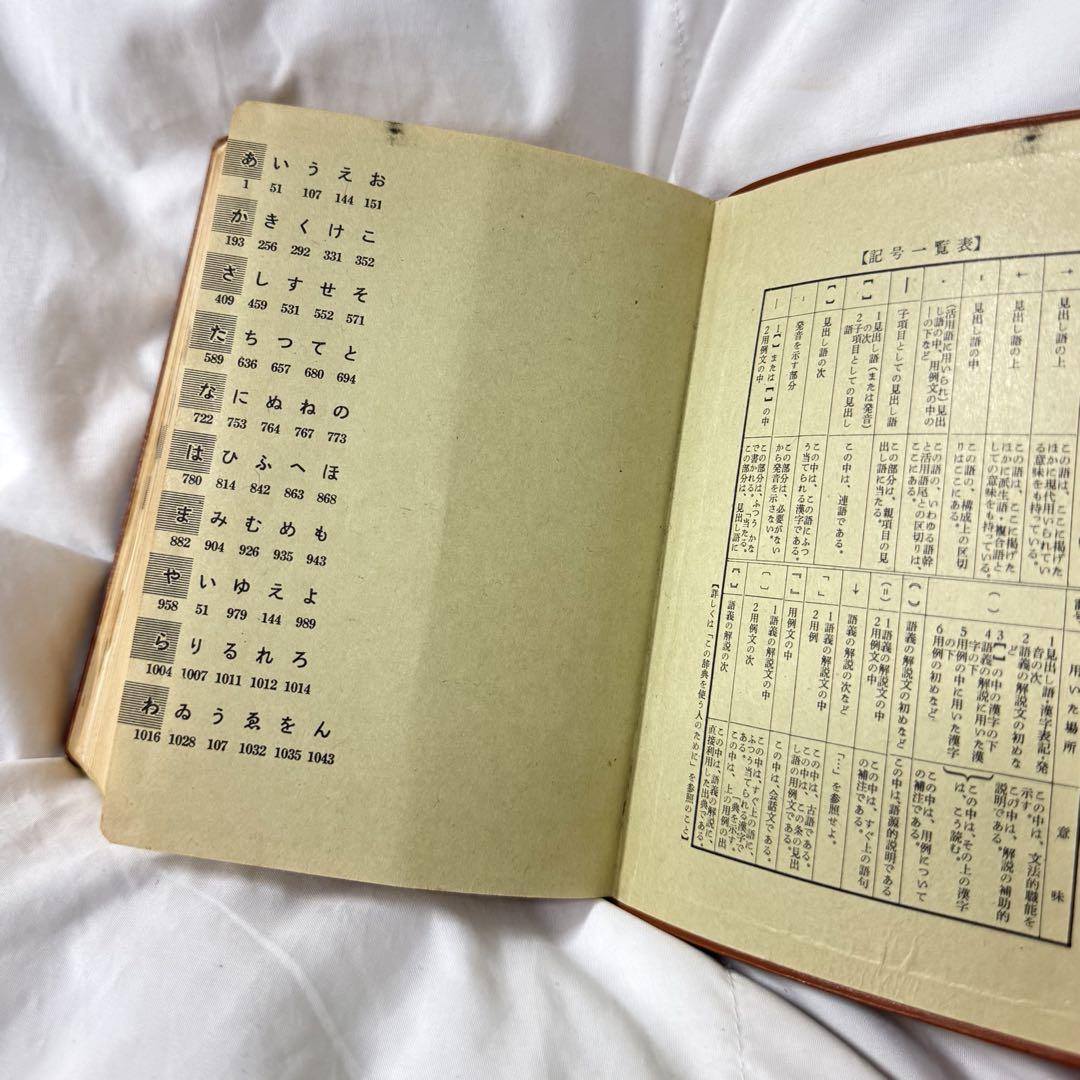 あ い う え お
1 51 107 144 151
か き く け こ
193 256 292 331 352
さ し す せ そ
409 459 531 552 571
た ち つ て と
589 636 657 680 694
な に ぬ ね の
722 753 764 767 773
は ひ ふ へ ほ
780 814 842 863 868
ま み む め も
882 904 926 935 943
や い ゆ え よ
958 51 979 144 989
ら り る れ ろ
1004 1007 1011 1012 1014
わ ゐ う ゑ を ん
1016 1028 107 1032 1035 1043
【記号一覧表】
見出し語の上
この語は、ここに掲げた
ほかに現代用いられてい
る意味をも持っている。
← 見出し語の上
この語は、ここに掲げた
ほかに派生語・複合語と
しての意味をも持っている。
- 見出し語の中
この語の、構成上の区切
りはここにある。
・ (活用語に用いられ)見出
し語の中、用例文の中の
―の下など
この語の、いわゆる語幹
と活用語尾との区切りは、
ここにある。
― 子項目としての見出し語
この部分は、親項目の見
出し語に当たる。
【 】 1見出し語(または発音)
の次
2子項目としての見出し
語
この中は、連語である。
【 】 見出し語の次
この中は、この語にふつ
う当てられる漢字である。
発音を示す部分
この部分は、必要がない
から発音を示さない。
1【 】または【 】の中
2用例文の中
この部分は、ふつうかな
で書かれる。「当たる。
この部分は、見出し語に
用いた場所
意味
( ) 1見出し語・漢字表記・発
音の次
2語義の解説文の初めな
ど
この中は、文法的職能を
示す。
この中は、解説の補助的
説明である。
3【 】の中の漢字の下
4語義の解説に用いた漢
字の下
5用例の中に用いた漢字
の下
この中は、その上の漢字
は、こう読む。
6用例の初めなど
この中は、用例について
の補注である。
語義の解説文の初めなど
この中は、語源的説明である
(=) 1語義の解説文の中
2用例文の中
この中は、すぐ上の語句
の補注である。
↓ 語義の解説の次など
「…」を参照せよ。
「 」 1語義の解説文の中
2用例
この中は、古語である。
この中は、この条の見出
し語の用例文である。
『 』 用例文の中
この中は、会話文である。
1語義の解説文の中
2用例文の次
この中は、すぐ上の語に、
ふつう当てられる漢字で
ある。
この中は、上の用例の出
典を示す。
語義の解説の次
この中は、語義の解説に、
直接利用した出典である。
【詳しくは「この辞典を使う人のために」を参照のこと】